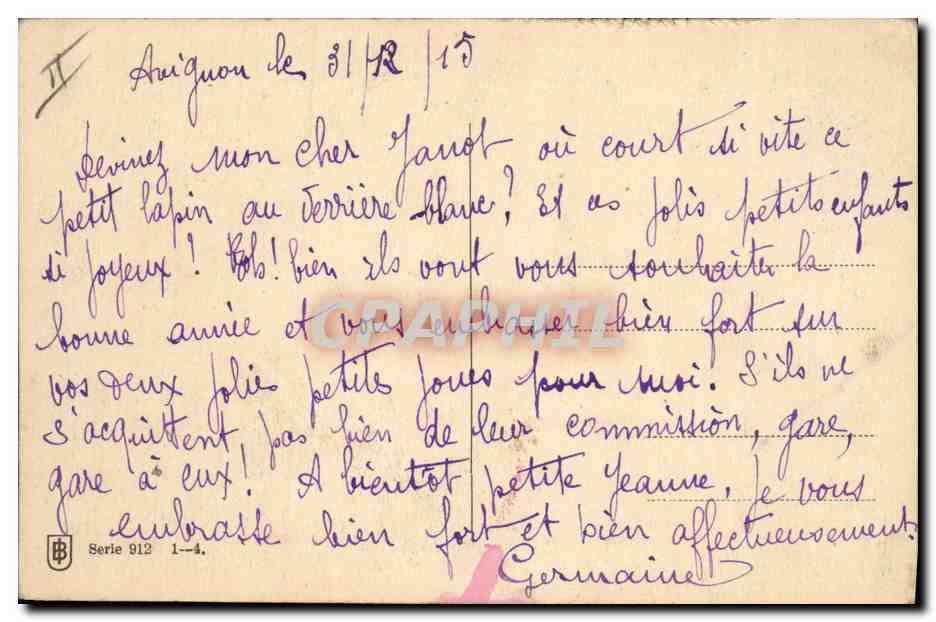 II
Avignon le 31/12/15
Devinez mon cher Janot où court si vite ce
petit lapin au derrière blanc? Et ces jolis petits enfants
si joyeux! Eh! bien ils vont vous souhaiter la
bonne année et vous embrasser bien fort sur
vos deux jolies petites joues pour moi. S'ils ne
s'acquittent pas bien de leur commission, gare,
gare à eux! A bientôt petite Jeanne, je vous
embrasse bien fort et bien affectueusement.
Germaine
Serie 912 1--4.
CPAPHIL